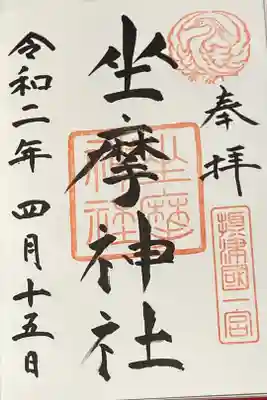 奉拝
摂津國一宮
坐摩神社
坐摩神社
令和二年 四月十五日